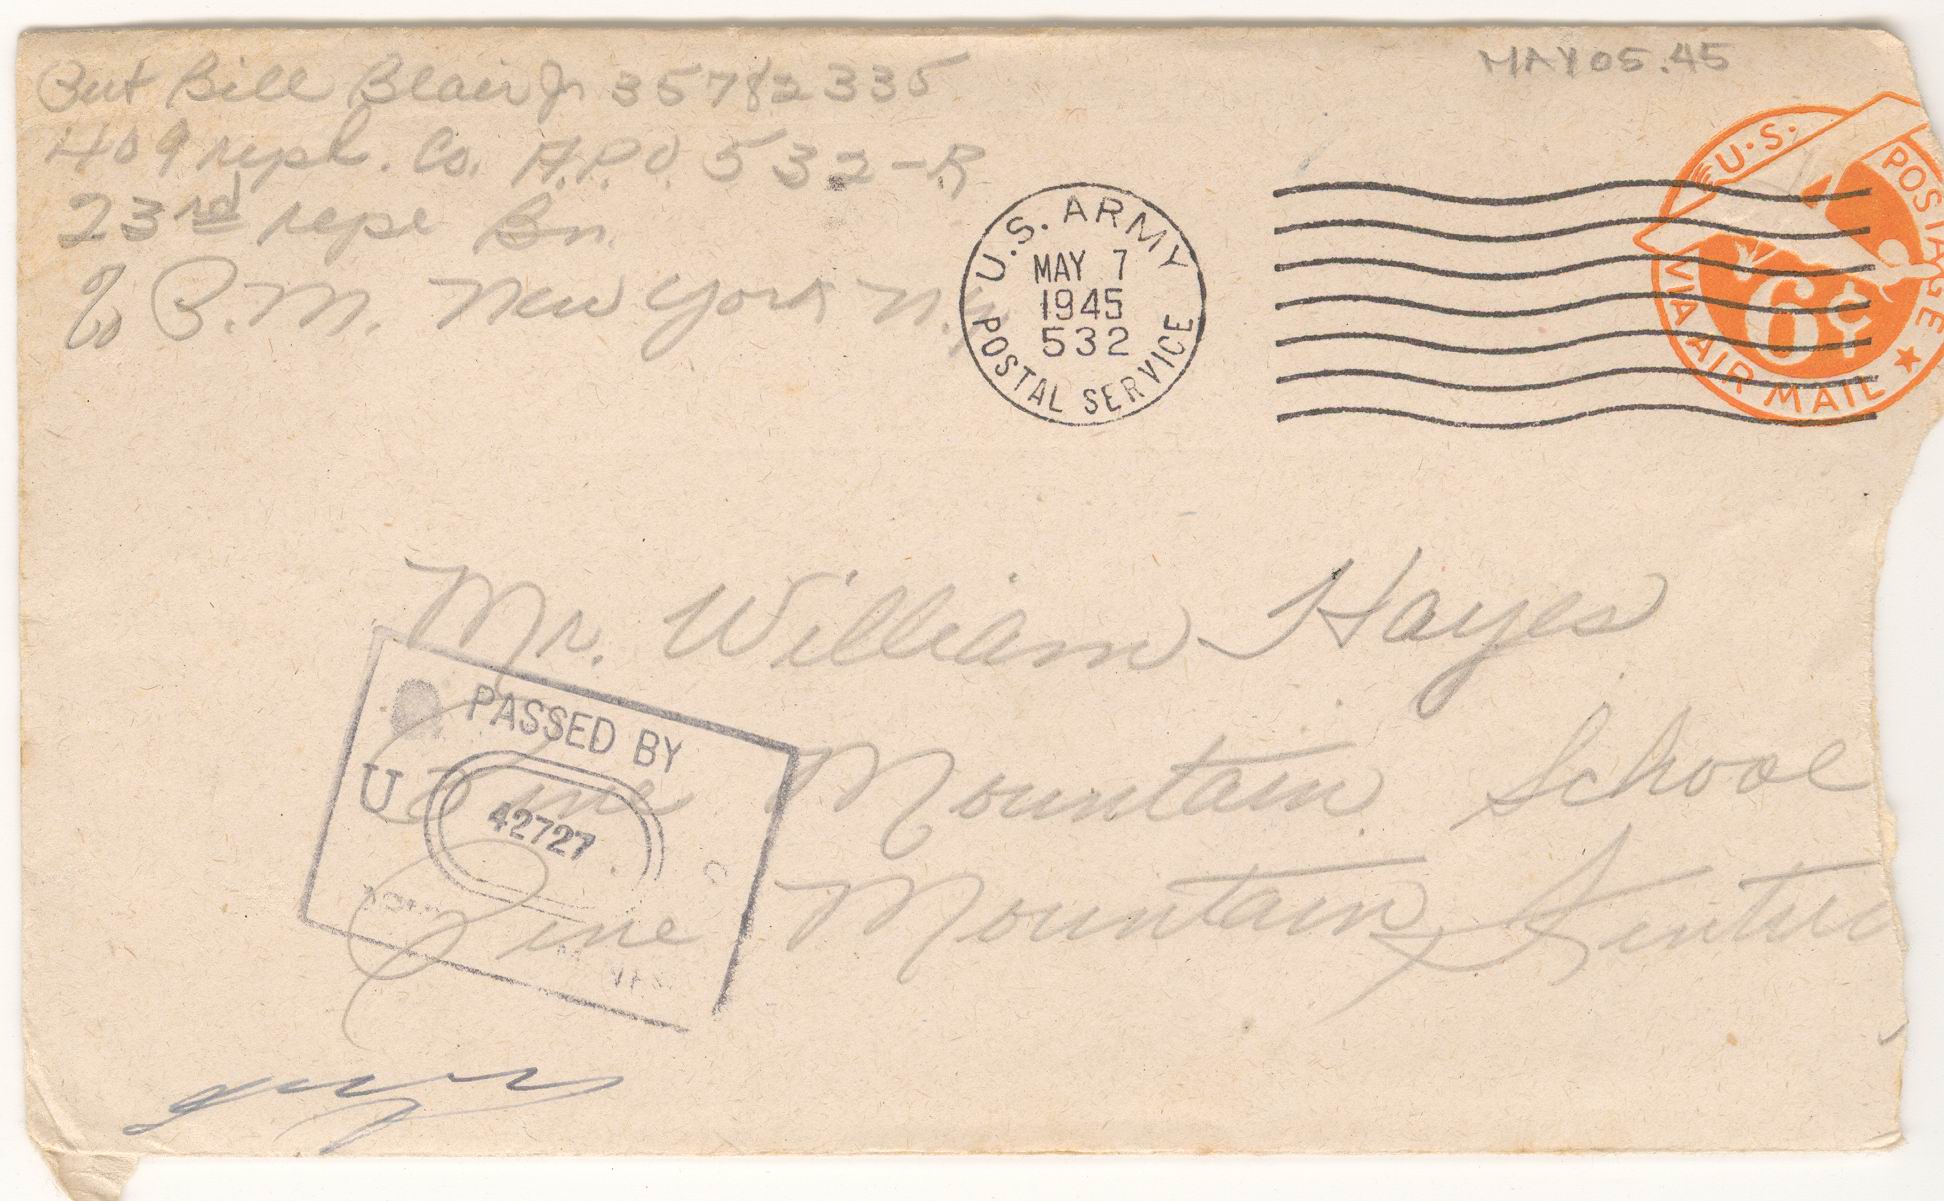 Pvt Bill Blair Jr 35782335
409 repl. Co. A.P.O. 532-R
23rd repl Bn.
c/o P.M. New York N.Y.
MAY 05.45
U.S. ARMY
MAY 7
1945
532
POSTAL SERVICE
U.S. POSTAGE
6¢
VIA AIR MAIL
Mr. William Hayes
Pine Mountain School
Pine Mountain, Kentuc
PASSED BY
U
42727